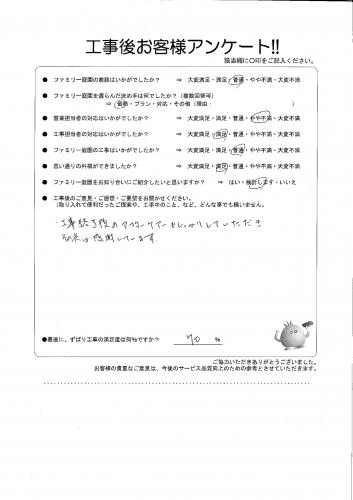 工事後お客様アンケート!!
該当欄に○印をご記入ください。
● ファミリー庭園の商談はいかがでしたか? ⇒ 大変満足・満足・普通・やや不満・大変不満
● ファミリー庭園を選らんだ決め手は何でしたか?(複数回答可)
⇒ 価格・プラン・対応・その他(理由: )
● 営業担当者の対応はいかがでしたか? ⇒ 大変満足・満足・普通・やや不満・大変不満
● 工事担当者の対応はいかがでしたか? ⇒ 大変満足・満足・普通・やや不満・大変不満
● ファミリー庭園の工事はいかがでしたか? ⇒ 大変満足・満足・普通・やや不満・大変不満
● 思い通りの外構ができましたか? ⇒ 大変満足・満足・普通・やや不満・大変不満
● ファミリー庭園をお知り合いにご紹介したいと思いますか? ⇒ はい・検討します・いいえ
● 工事後のご意見・ご感想・ご要望をお聞かせください。
(取り入れて便利だったご提案や、工事中のこと、など、どんな事でも構いません。
・工事終了後のアフターケアーもしっかりしていただき
感謝しています。
●最後に、ずばり工事の満足度は何%ですか? 90 %
ご協力いただきありがとうございました。
お客様の貴重なご意見は、今後のサービス品質向上のための参考とさせていただきます。